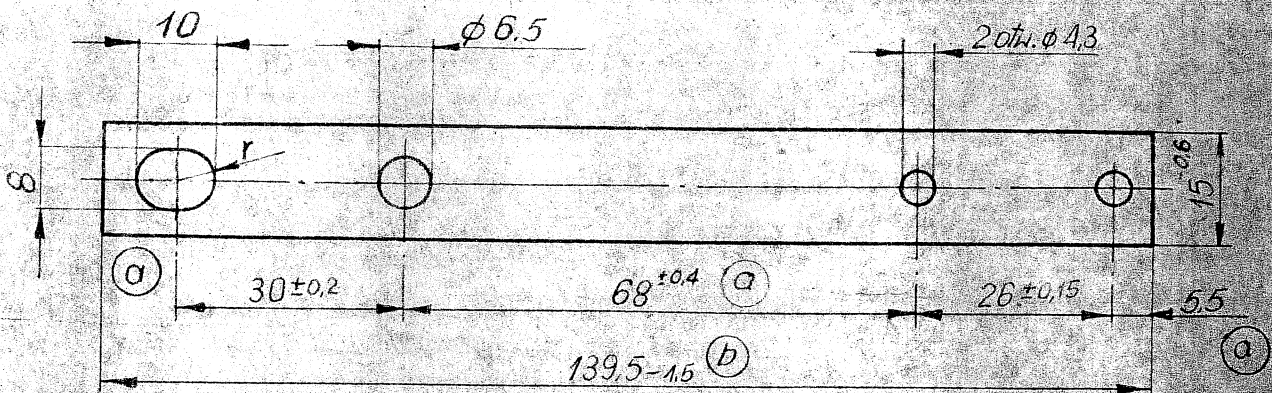 10
ϕ 6.5
2 otw. ϕ 4,3
8
r
15 -0,6
a
30 ±0,2
68 ±0,4 a
26 ±0,15
5,5
a
139,5 -1,5 b